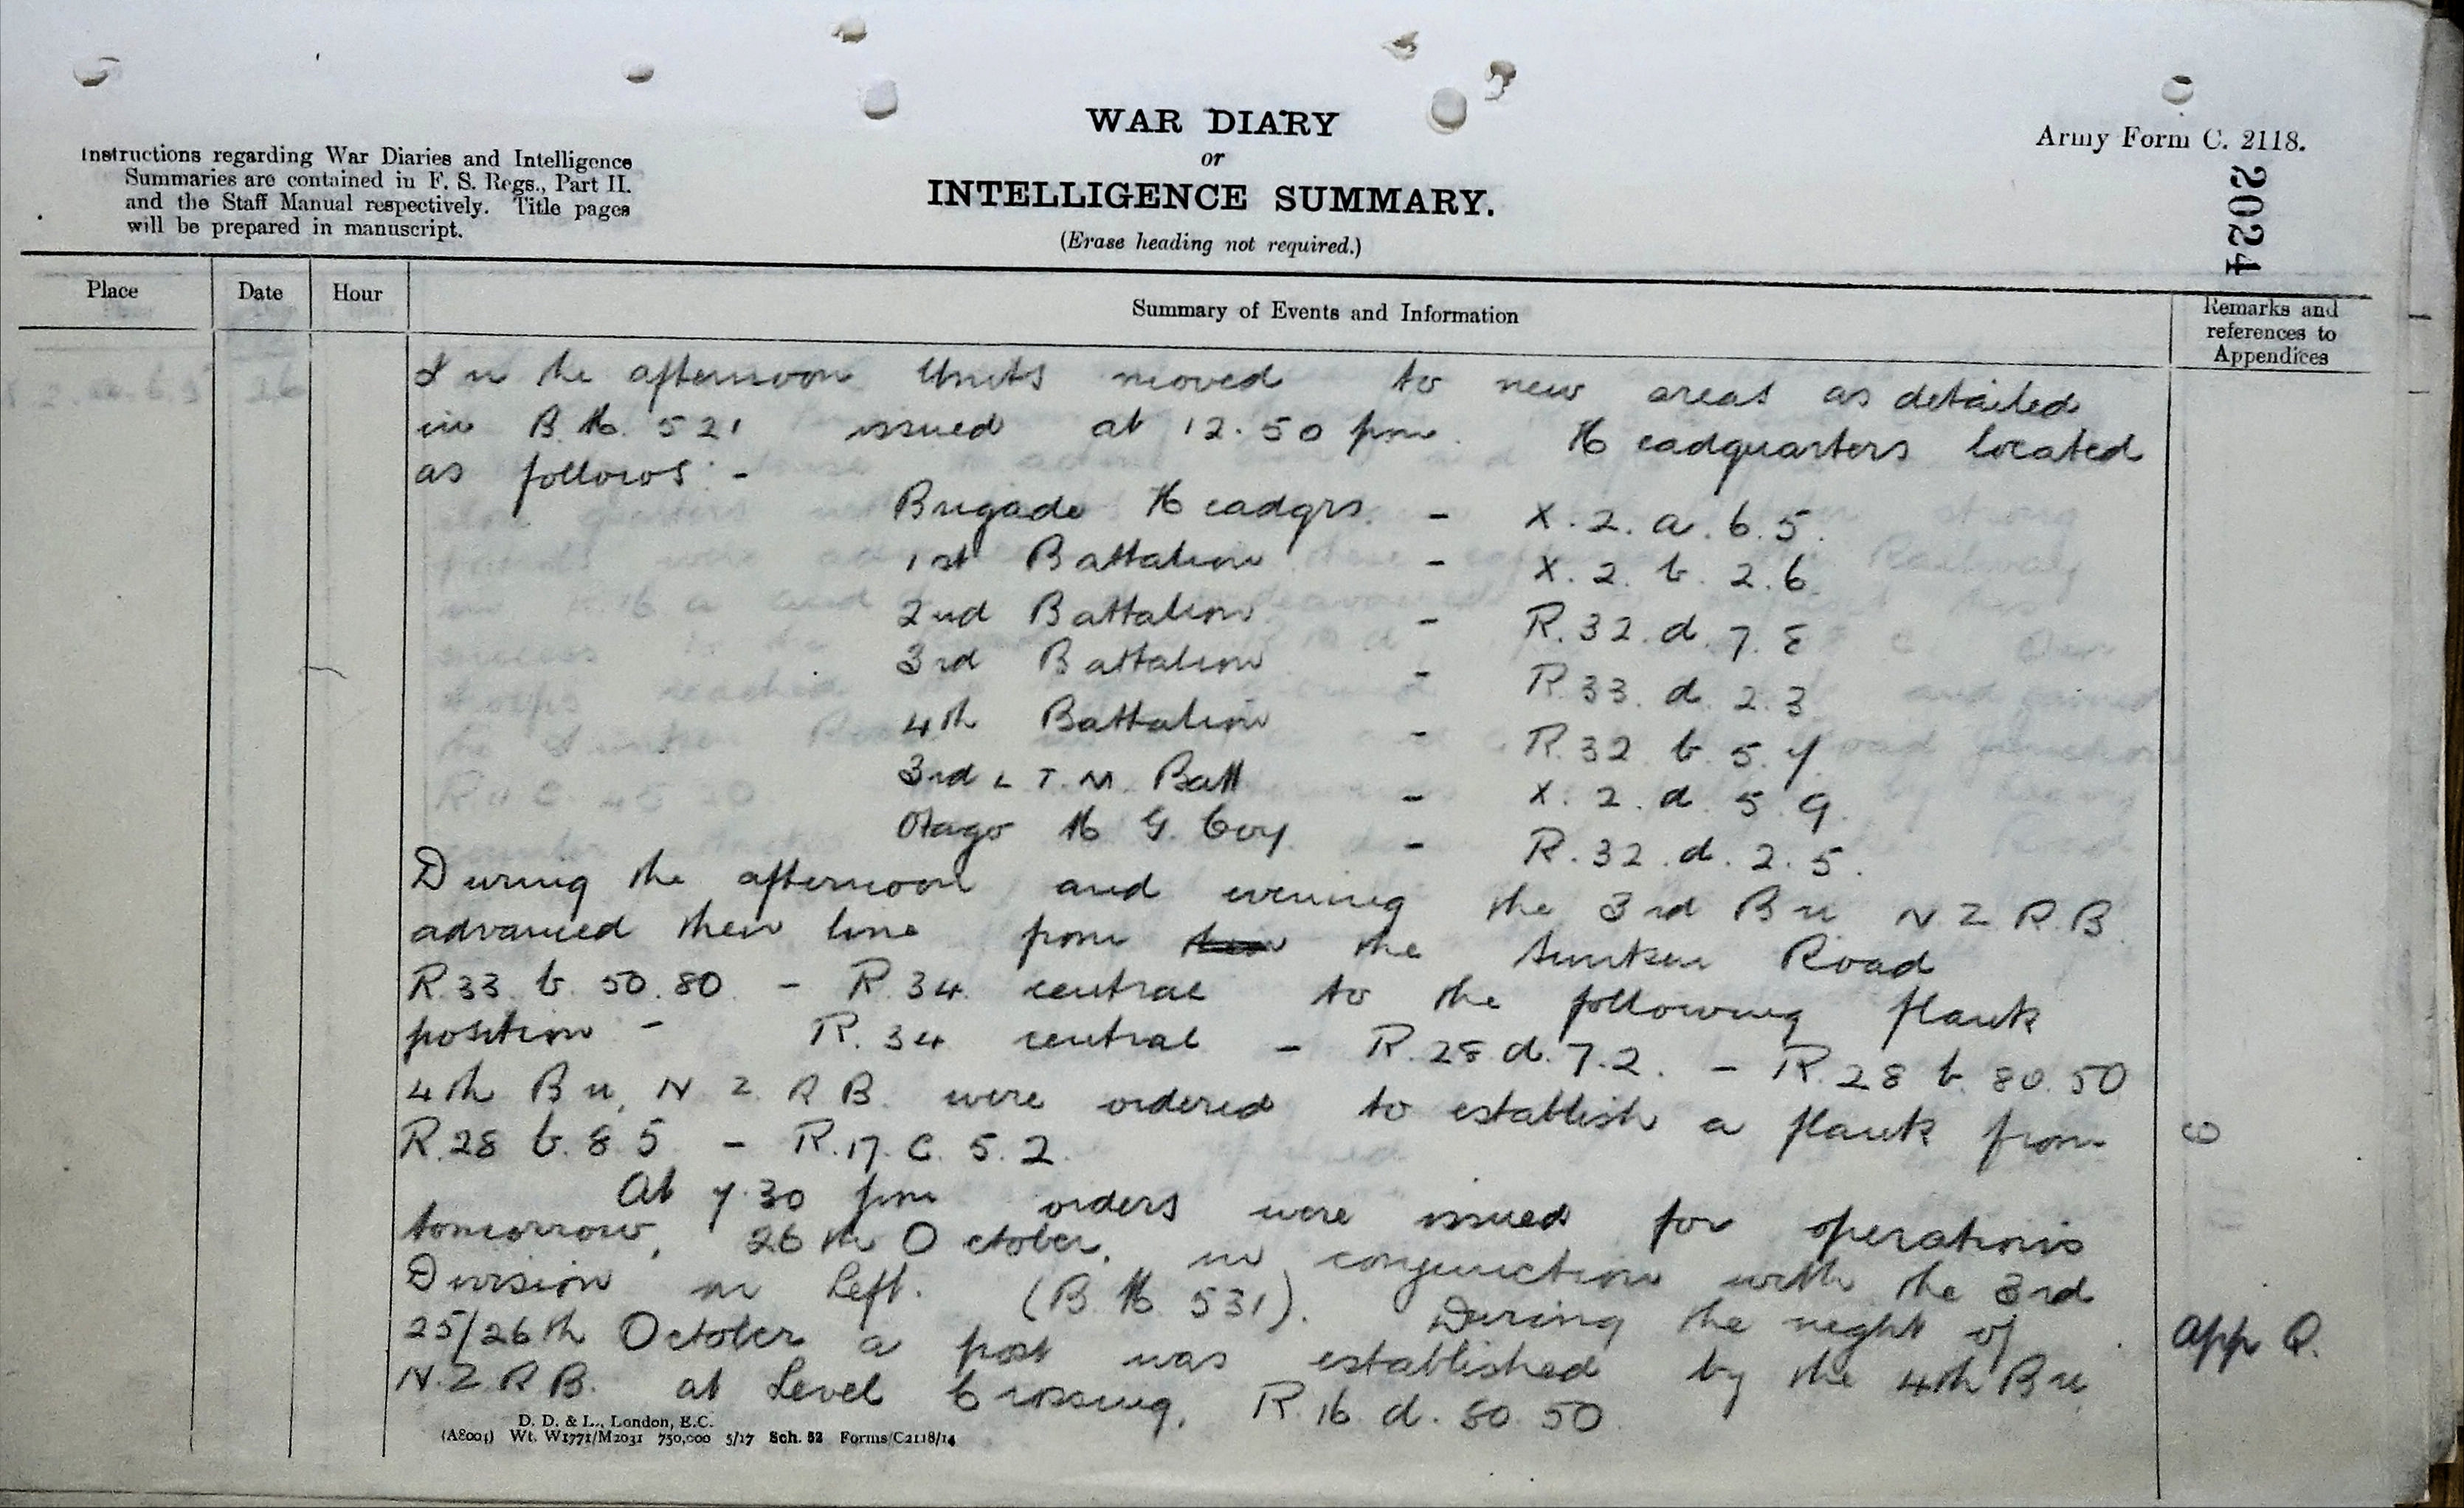 WAR DIARY
or
INTELLIGENCE SUMMARY.
(Erase heading not required.)
Instructions regarding War Diaries and Intelligence
Summaries are contained in F. S. Regs., Part II.
and the Staff Manual respectively. Title pages
will be prepared in manuscript.
Army Form C. 2118.
2024
Place Date Hour Summary of Events and Information Remarks and
references to
Appendices
In the afternoon Units moved to new areas as detailed
in B.M. 521 issued at 12.50 pm. Headquarters located
as follows: -
Brigade Headqrs. - X.2.a.6.5.
1st Battalion - X.2.b.2.6
2nd Battalion - R.32.d.7.8
3rd Battalion - R.33.d.2.3
4th Battalion - R.32.b.5.7
3rd L.T.M. Batt - X.2.d.5.9.
Otago M.G. Coy. - R.32.d.2.5.
During the afternoon and evening the 3rd Bn. N.Z.R.B.
advanced their line from the Sunken Road
R.33.b.50.80. - R.34 central to the following flank
position - R.34 central - R.28.d.7.2. - R.28.b.80.50
4th Bn. N.Z.R.B. were ordered to establish a flank from
R.28.b.8.5 - R.17.c.5.2.
At 7.30 pm orders were issued for operations
tomorrow, 26th October, in conjunction with the 3rd
Division on Left. (B.M. 531). During the night of
25/26th October a post was established by the 4th Bn.
N.Z.R.B. at Level Crossing, R.16.d.80.50.
App Q.
D. D. & L., London, E.C.
(A8001) Wt. W1771/M2031 750,000 5/17 Sch. 52 Forms/C2118/14